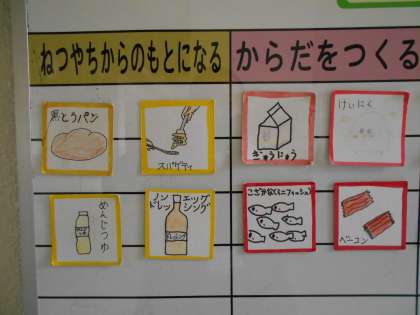 ねつやちからのもとになる
からだをつくる
黒とうパン
スパゲティ
ぎゅうにゅう
けいにく
めんじつゆ
ノンエッグ
ドレッシング
こざかな(ミニフィッシュ)
ベーコン